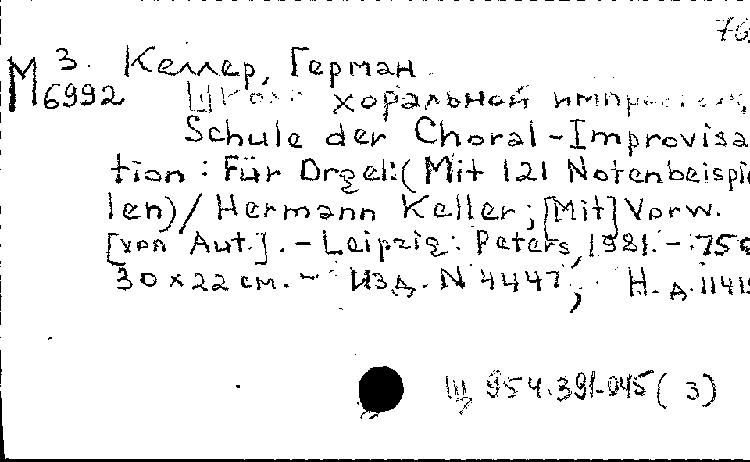 76
3. Келлер, Герман
М 6992 Школа хоральной импровизац
Schule der Choral-Improvisa
tion : Für Orgel: (Mit 121 Notenbeispie
len) / Hermann Keller ; [Mit] Vorw.
[von Aut.]. - Leipzig : Peters, 1981. - 75 с
30 x 22 см. - Изд. N 4447; Н. д. 11415
Щ 954.391-045 (3)